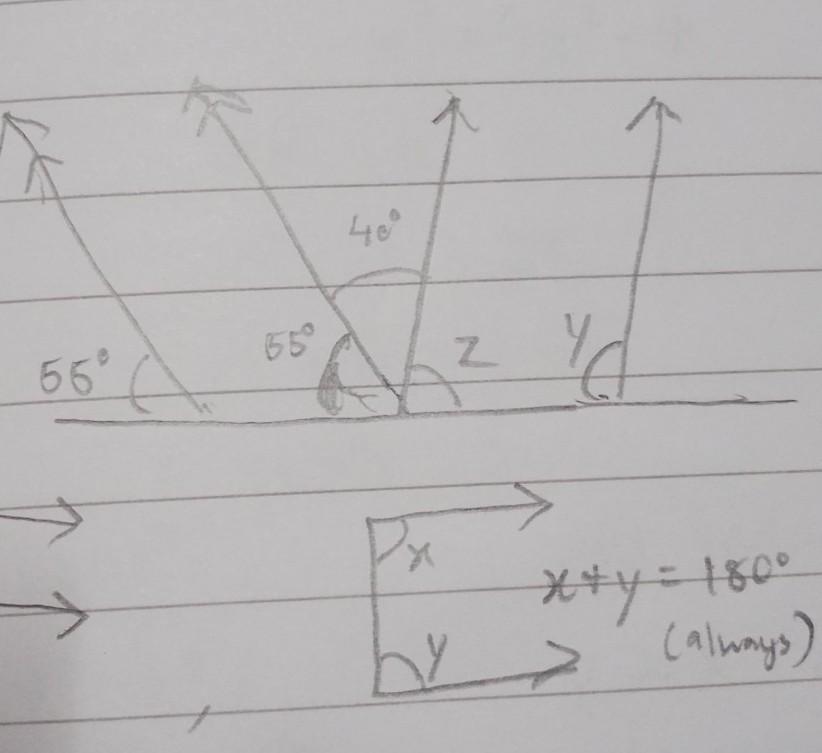 40°
55°
55°
z
y
x
y
x+y=180°
(always)